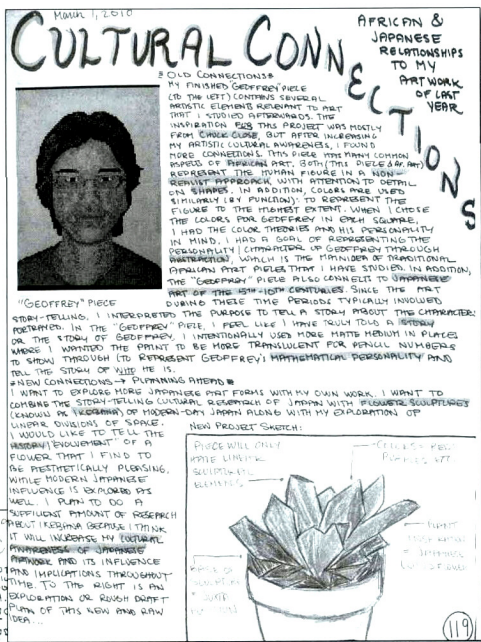 March 1, 2010
CULTURAL CONNECTIONS
AFRICAN &
JAPANESE
RELATIONSHIPS
TO MY
ARTWORK
OF LAST
YEAR
* OLD CONNECTIONS *
MY FINISHED "GEOFFREY" PIECE
(TO THE LEFT) CONTAINS SEVERAL
ARTISTIC ELEMENTS RELEVANT TO ART
THAT I STUDIED AFTERWARDS. THE
INSPIRATION FOR THIS PROJECT WAS MOSTLY
FROM CHUCK CLOSE. BUT AFTER INCREASING
MY ARTISTIC CULTURAL AWARENESS, I FOUND
MORE CONNECTIONS. THIS PIECE HAS MANY COMMON
ASPECTS OF AFRICAN ART. BOTH (THIS PIECE & AF. ART)
REPRESENT THE HUMAN FIGURE IN A NON-
REALIST APPROACH, WITH ATTENTION TO DETAIL
ON SHAPES. IN ADDITION, COLORS ARE USED
SIMILARLY (BY FUNCTION): TO REPRESENT THE
FIGURE TO THE HIGHEST EXTENT. WHEN I CHOSE
THE COLORS FOR GEOFFREY IN EACH SQUARE,
I HAD THE COLOR THEORIES AND HIS PERSONALITY
IN MIND. I HAD A GOAL OF REPRESENTING THE
PERSONALITY/CHARACTER OF GEOFFREY THROUGH
ABSTRACTION, WHICH IS THE MAIN IDEA OF TRADITIONAL
AFRICAN ART PIECES THAT I HAVE STUDIED. IN ADDITION,
THE "GEOFFREY" PIECE ALSO CONNECTS TO JAPANESE
ART OF THE 15TH-16TH CENTURIES. SINCE THE ART
"GEOFFREY" PIECE
DURING THESE TIME PERIODS TYPICALLY INVOLVED
STORY-TELLING, I INTERPRETED THE PURPOSE TO TELL A STORY ABOUT THE CHARACTER
PORTRAYED. IN THE "GEOFFREY" PIECE, I FEEL LIKE I HAVE TRULY TOLD A STORY
OR THE STORY OF GEOFFREY. I INTENTIONALLY USED MORE MATTE MEDIUM IN PLACES
WHERE I WANTED THE PAINT TO BE MORE TRANSLUCENT FOR PENCIL NUMBERS
TO SHOW THROUGH (TO REPRESENT GEOFFREY'S MATHEMATICAL PERSONALITY AND
TELL THE STORY OF WHO HE IS.
* NEW CONNECTIONS → PLANNING AHEAD *
I WANT TO EXPLORE MORE JAPANESE ART FORMS WITH MY OWN WORK. I WANT TO
COMBINE THE STORY-TELLING CULTURAL RESEARCH OF JAPAN WITH FLOWER SCULPTURES
(KNOWN AS IKEBANA) OF MODERN-DAY JAPAN ALONG WITH MY EXPLORATION OF
LINEAR DIVISIONS OF SPACE.
I WOULD LIKE TO TELL THE
HISTORY/EVOLVEMENT OF A
FLOWER THAT I FIND TO
BE AESTHETICALLY PLEASING,
WHILE MODERN JAPANESE
INFLUENCE IS EXPLORED AS
WELL. I PLAN TO DO A
SUFFICIENT AMOUNT OF RESEARCH
ABOUT IKEBANA BECAUSE I THINK
IT WILL INCREASE MY CULTURAL
AWARENESS OF JAPANESE
ARTWORK AND ITS INFLUENCE
AND IMPLICATIONS THROUGHOUT
TIME. TO THE RIGHT IS AN
EXPLORATION OR ROUGH DRAFT
PLAN OF THIS NEW AND RAW
IDEA...
NEW PROJECT SKETCH:
PIECE WILL ONLY
HAVE LINEAR
SCULPTURAL
ELEMENTS
BASE OF
SCULPTURE
119